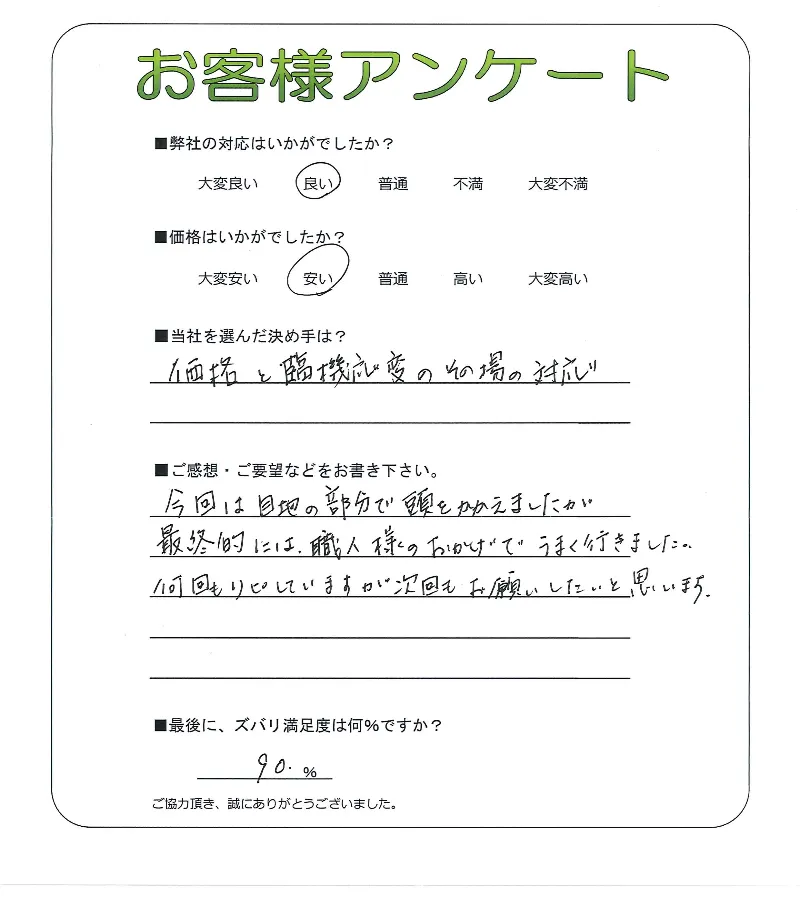 お客様アンケート
■弊社の対応はいかがでしたか？
大変良い 良い 普通 不満 大変不満
■価格はいかがでしたか？
大変安い 安い 普通 高い 大変高い
■当社を選んだ決め手は？
価格と臨機応変のその場の対応
■ご感想・ご要望などをお書き下さい。
今回は目地の部分で頭をかかえましたが
最終的には、職人様のおかげでうまく行きました。
何回もリピしていますが次回もお願いしたいと思います。
■最後に、ズバリ満足度は何%ですか？
90. %
ご協力頂き、誠にありがとうございました。